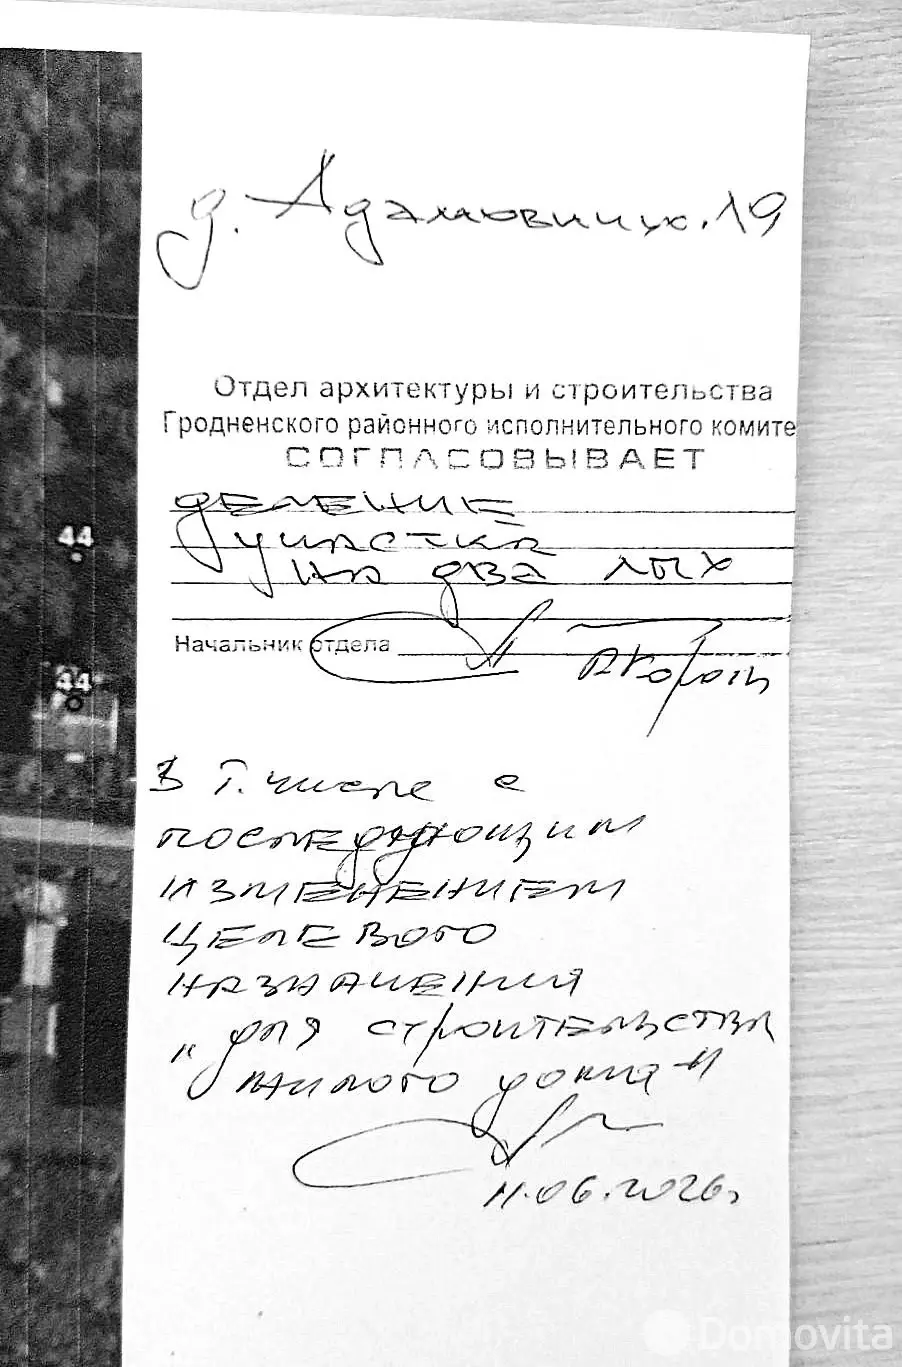 д. Адамовичи. 19
Отдел архитектуры и строительства
Гродненского районного исполнительного комите
СОГЛАСОВЫВАЕТ
деление
участка
на два
44
Начальник отдела
44
в т. числе с
последующим
изменением
целевого
назначения
„для строительства
жилого дома"
11.06.2026
Domovita